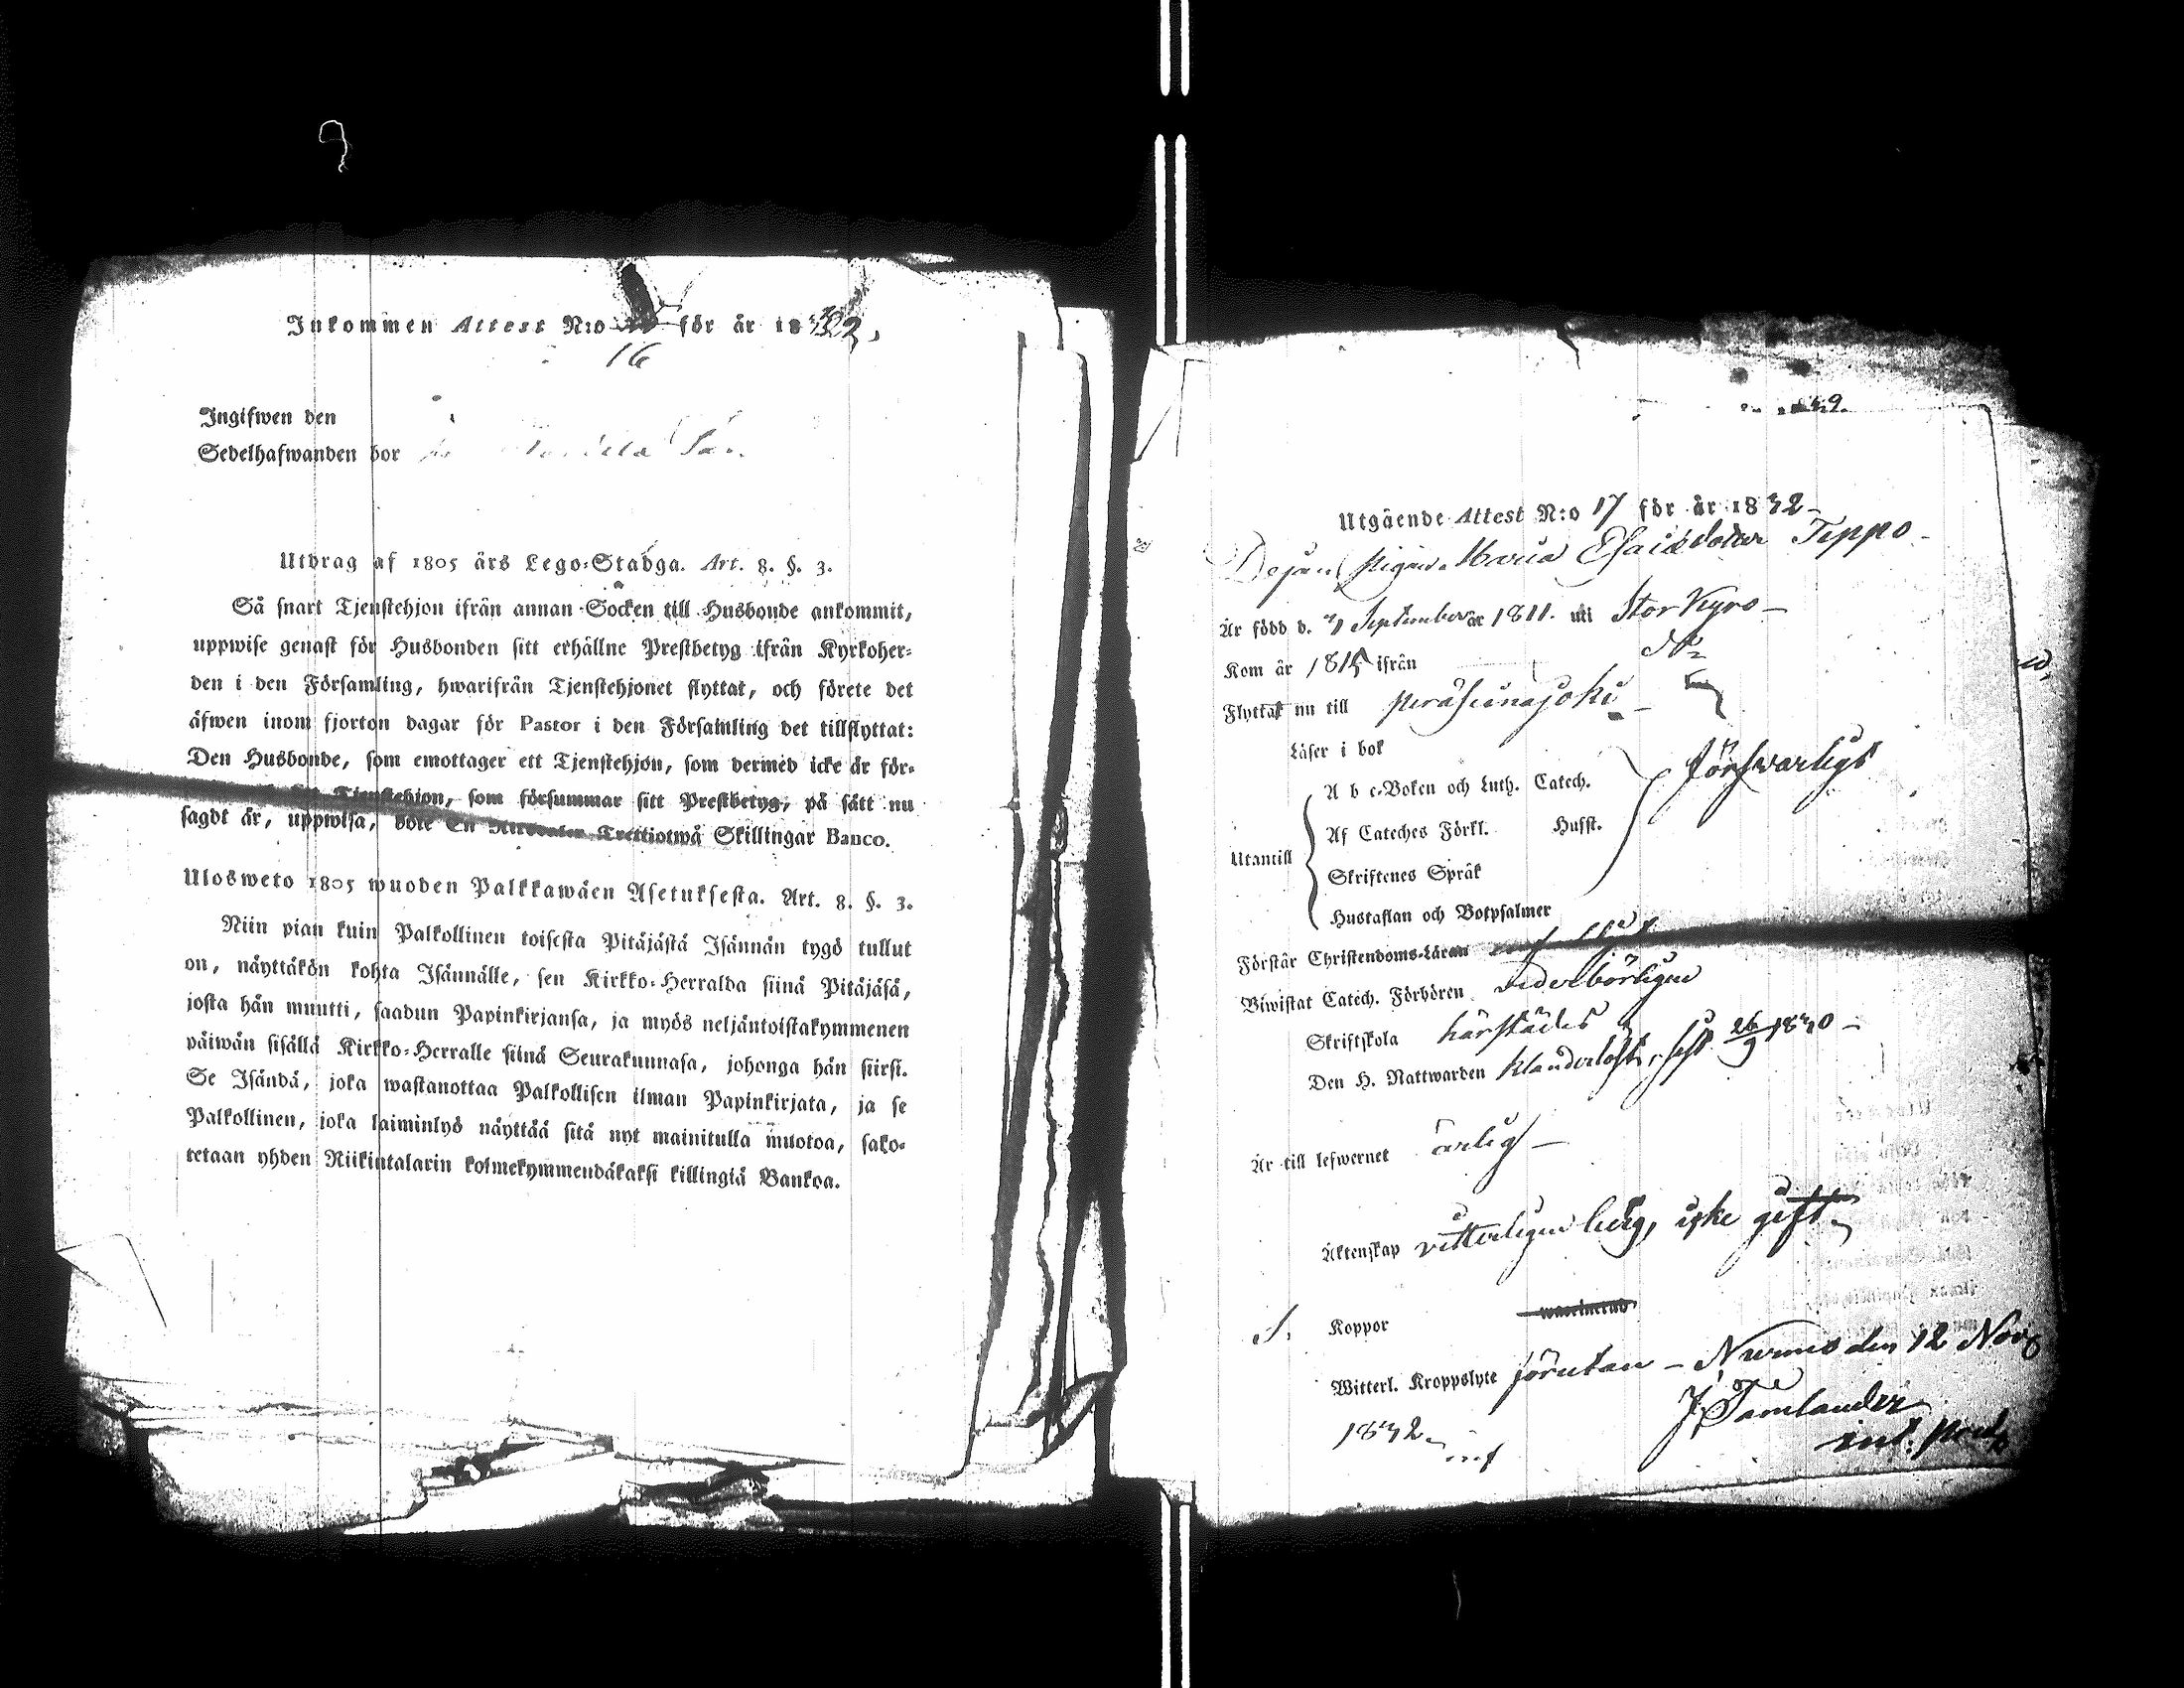 Inkommen Attest N:o för år 1832.
16
Ingifwen den
Sedelhafwanden bor
Utdrag af 1805 års Lego-Stadga. Art. 8. §. 3.
Så snart Tjenstehjon ifrån annan Socken till Husbonde ankommit,
uppwise genast för Husbonden sitt erhållne Prestbetyg ifrån Kyrkoher-
den i den Församling, hwarifrån Tjenstehjonet flyttat, och förete det
äfwen inom fjorton dagar för Pastor i den Församling det tillflyttat:
Den Husbonde, som emottager ett Tjenstehjon, som dermed icke är för-
Tjenstehjon, som försummar sitt Prestbetyg, på sätt nu
sagdt är, uppwisa, böte En Riksdaler Trettiotwå Skillingar Banco.
Ulosweto 1805 wuoden Palkkawäen Asetuksesta. Art. 8. §. 3.
Niin pian kuin Palkollinen toisesta Pitäjästä Isännän tygö tullut
on, näyttäkön kohta Isännälle, sen Kirkko-Herralda siinä Pitäjäsä,
josta hän muutti, saadun Papinkirjansa, ja myös neljäntoistakymmenen
päiwän sisällä Kirkko-Herralle siinä Seurakunnasa, johonga hän siirsi.
Se Isändä, joka wastanottaa Palkollisen ilman Papinkirjata, ja se
Palkollinen, joka laiminlyö näyttää sitä nyt mainitulla muotoa, sako-
tetaan yhden Riikintalarin kolmekymmendäkaksi killingiä Bankoa.
Utgående Attest N:o 17 för år 1832
Dejan pigan Maria Esaisdotter Teppo
Är född d. September år 1811. uti Stor Kyro
Kom år 1815 ifrån
Flyttat nu till peräseinäjoki
Läser i bok
försvarligt
A b c-Boken och Luth. Catech.
Af Cateches Förkl. Husst.
Utantill
Skriftenes Språk
Hustaflan och Botpsalmer
Förstår Christendoms-Läran
Biwistat Catech. Förhören vederbörligen
Skriftskola härstädes
Den H. Nattwarden klanderlöst, sist 26/9 1830
Är till lefwernet ärlig
Äktenskap vitterligen ledig, icke gift
S. Koppor
Witterl. Kroppslyte förutan – Nurmo den 12 Nov
1832
J. Tamlander